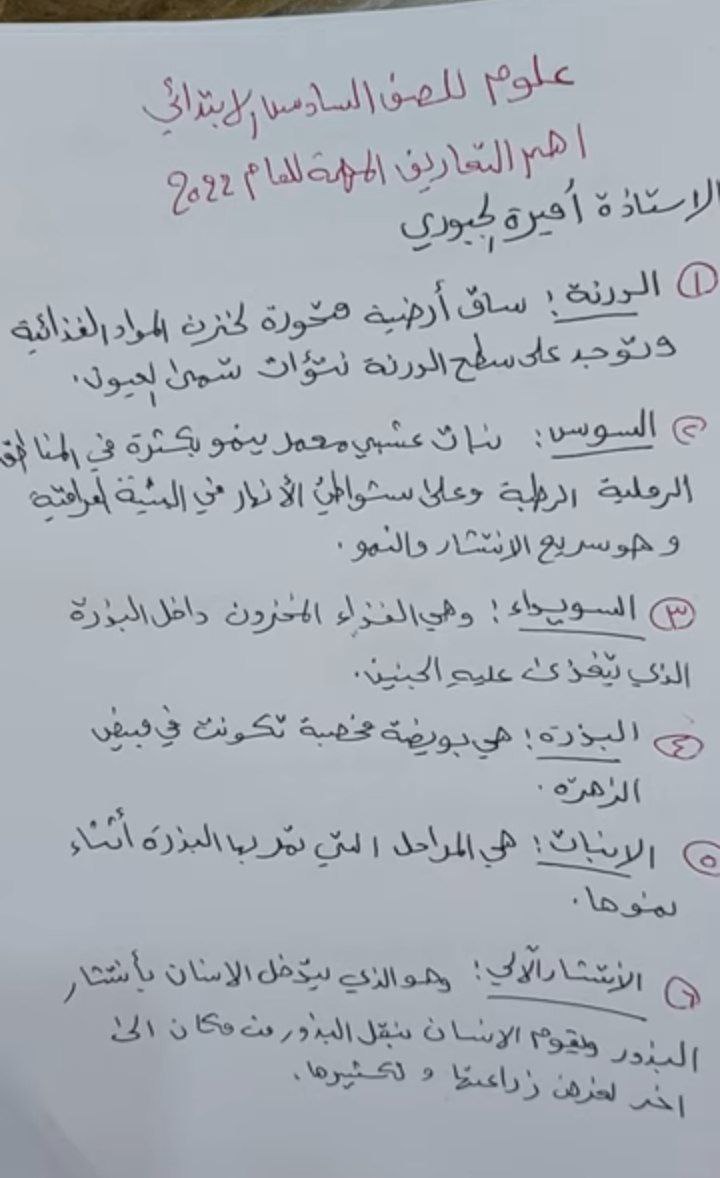 علوم للصف السادس الابتدائي
اهم التعاريف المهمة للعام 2022
الاستاذة أميرة الجبوري
١ الدرنة: ساق أرضية محورة لخزن المواد الغذائية
وتوجد على سطح الدرنة نتؤات تسمى العيون.
٢ السوس: نبات عشبي معمر ينمو بكثرة في المناطق
الرملية الرطبة وعلى شواطئ الأنهار في البيئة العراقية
وهو سريع الانتشار والنمو.
٣ السويداء: وهي الغذاء المخزون داخل البذرة
الذي يتغذى عليه الجنين.
٤ البذرة: هي بويضة مخصبة تكونت في مبيض
الزهرة.
٥ الانبات: هي المراحل التي تمر بها البذرة أثناء
نموها.
٦ الأنتشار الآلي: وهو الذي يتدخل الانسان بأنتشار
البذور ويقوم الانسان بنقل البذور من مكان الى
اخر لغرض زراعتها وتكثيرها.